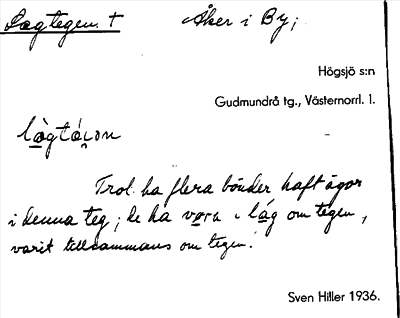 Lagtegen † Åker i By;
Högsjö s:n
Gudmundrå tg., Västernorrl. l.
Trol. ha flera bönder haft ägor
i denna teg; de ha vara i låg om tegen,
varit tillsammans om tegen.
Sven Hiller 1936.